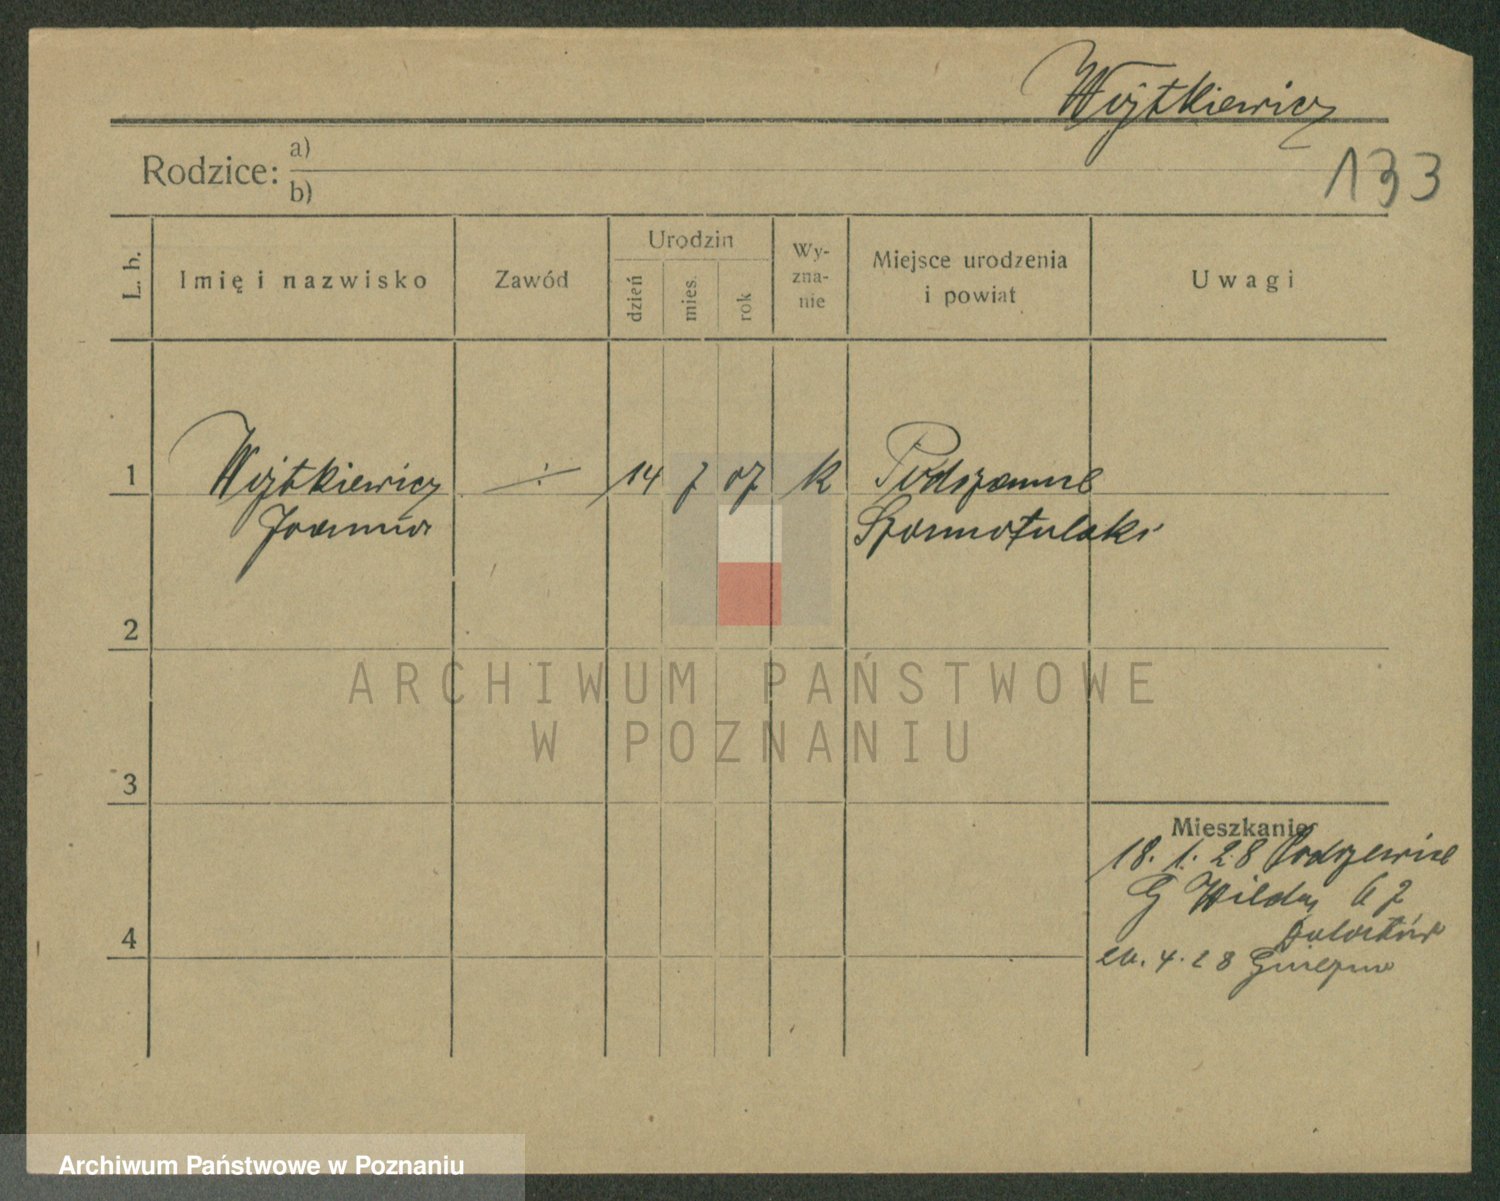 Wojtkiewicz
133
Rodzice: a)
b)
L. b.
Imię i nazwisko
Zawód
Urodzin
dzień
mies.
rok
Wy-
zna-
nie
Miejsce urodzenia
i powiat
Uwagi
1
Wojtkiewicz
Joanna
÷
14
7
07
k
Szamotulski
2
3
4
Mieszkanie
18. 1. 28
G Wilda 67
4. 28 Gniezno
ARCHIWUM PAŃSTWOWE
W POZNANIU
Archiwum Państwowe w Poznaniu